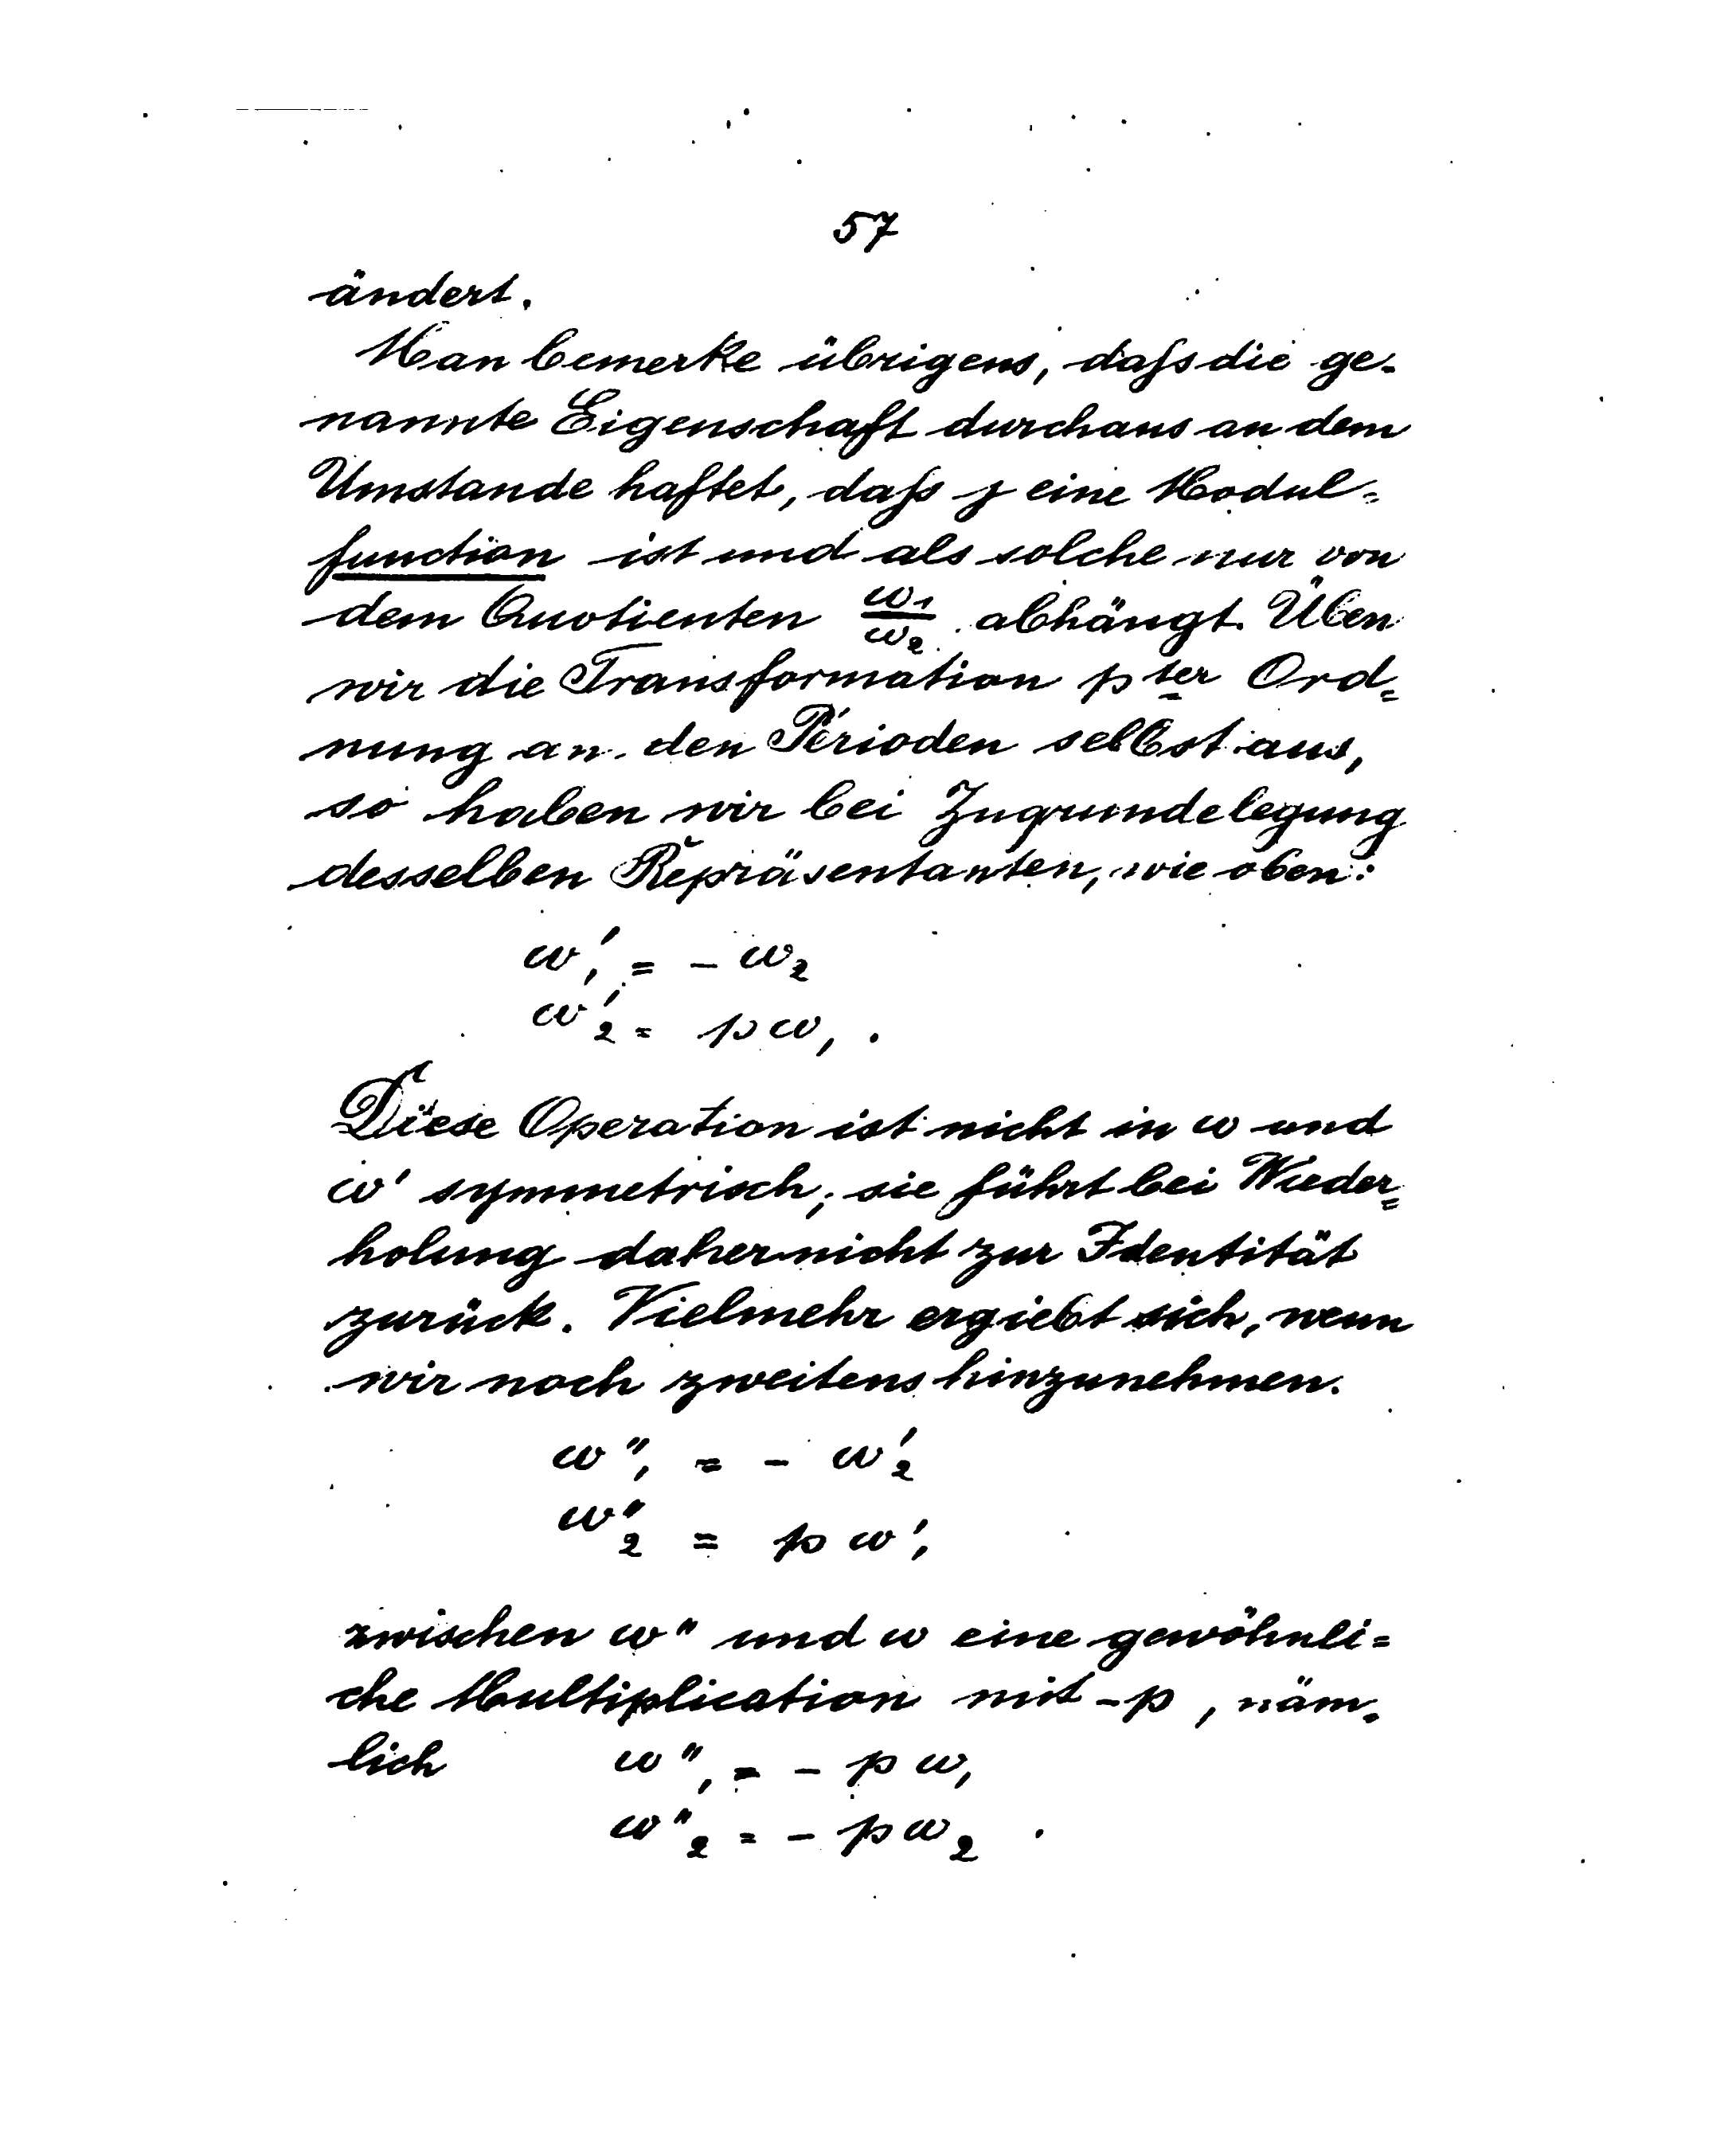 57
ändert.
Man bemerke übrigens, daſs die ge-
nannte Eigenschaft durchaus an dem
Umstande haftet, daſs j eine Modul-
function ist und als solche nur von
dem Quotienten ω₁/ω₂ abhängt. Üben
wir die Transformation pter Ord=
nung an den Perioden selbst aus,
so haben wir bei Zugrundelegung
desselben Repräsentanten, wie oben:
ω₁′ = – ω₂
ω₂′ = pω₁.
Diese Operation ist nicht in ω und
ω′ symmetrisch; sie führt bei Wieder=
holung daher nicht zur Identität
zurück. Vielmehr ergiebt sich, wenn
wir noch zweitens hinzunehmen.
ω″₁ = – ω′₂
ω″₂ = p ω′₁
zwischen ω″ und ω eine gewöhnli=
che Multiplication mit –p, näm-
lich ω″₁ = – p ω₁
ω″₂ = – p ω₂.